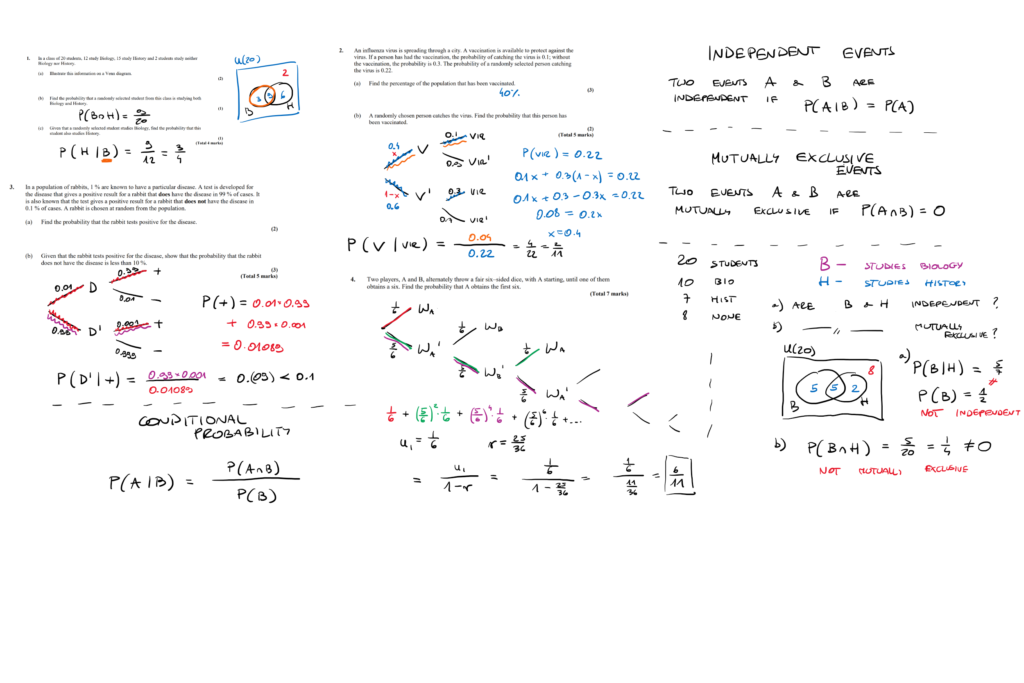 1. In a class of 20 students, 12 study Biology, 15 study History and 2 students study neither
Biology nor History.
(a) Illustrate this information on a Venn diagram.
(2)
U(20)
2
3 9 6
B H
(b) Find the probability that a randomly selected student from this class is studying both
Biology and History.
(1)
P(B∩H) = 9/20
(c) Given that a randomly selected student studies Biology, find the probability that this
student also studies History.
(1)
(Total 4 marks)
P(H|B) = 9/12 = 3/4
3. In a population of rabbits, 1 % are known to have a particular disease. A test is developed for
the disease that gives a positive result for a rabbit that does have the disease in 99 % of cases. It
is also known that the test gives a positive result for a rabbit that does not have the disease in
0.1 % of cases. A rabbit is chosen at random from the population.
(a) Find the probability that the rabbit tests positive for the disease.
(2)
(b) Given that the rabbit tests positive for the disease, show that the probability that the rabbit
does not have the disease is less than 10 %.
(3)
(Total 5 marks)
0.99 +
0.01 D
0.01 –
0.99 D' 0.001 +
0.999 –
P(+) = 0.01·0.99
+ 0.99·0.001
= 0.01089
P(D'|+) = 0.99×0.001/0.01089 = 0.(09) < 0.1
CONDITIONAL
PROBABILITY
P(A|B) = P(A∩B)/P(B)
2. An influenza virus is spreading through a city. A vaccination is available to protect against the
virus. If a person has had the vaccination, the probability of catching the virus is 0.1; without
the vaccination, the probability is 0.3. The probability of a randomly selected person catching
the virus is 0.22.
(a) Find the percentage of the population that has been vaccinated.
(3)
40%
(b) A randomly chosen person catches the virus. Find the probability that this person has
been vaccinated.
(2)
(Total 5 marks)
0.1 VIR
0.4 x V
0.9 VIR'
1-x V' 0.3 VIR
0.6
0.7 VIR'
P(VIR) = 0.22
0.1x + 0.3(1-x) = 0.22
0.1x + 0.3 - 0.3x = 0.22
0.08 = 0.2x
x = 0.4
P(V|VIR) = 0.04/0.22 = 4/22 = 2/11
4. Two players, A and B, alternately throw a fair six–sided dice, with A starting, until one of them
obtains a six. Find the probability that A obtains the first six.
(Total 7 marks)
1/6 WA
5/6 WA' 1/6 WB
5/6 WB' 1/6 WA
5/6 WA'
1/6 + (5/6)²·1/6 + (5/6)⁴·1/6 + (5/6)⁶·1/6 + ...
u₁ = 1/6 r = 25/36
= u₁/1-r = 1/6/1 - 25/36 = 1/6/11/36 = 6/11
INDEPENDENT EVENTS
TWO EVENTS A & B ARE
INDEPENDENT IF P(A|B) = P(A)
MUTUALLY EXCLUSIVE
EVENTS
TWO EVENTS A & B ARE
MUTUALLY EXCLUSIVE IF P(A∩B) = 0
20 STUDENTS
10 BIO
7 HIST
8 NONE
B – STUDIES BIOLOGY
H – STUDIES HISTORY
a) ARE B & H INDEPENDENT ?
b) —— " —— MUTUALLY
EXCLUSIVE ?
U(20)
8
5 5 2
B H
a) P(B|H) = 5/7
≠
P(B) = 1/2
NOT INDEPENDENT
b) P(B∩H) = 5/20 = 1/4 ≠ 0
NOT MUTUALLY EXCLUSIVE